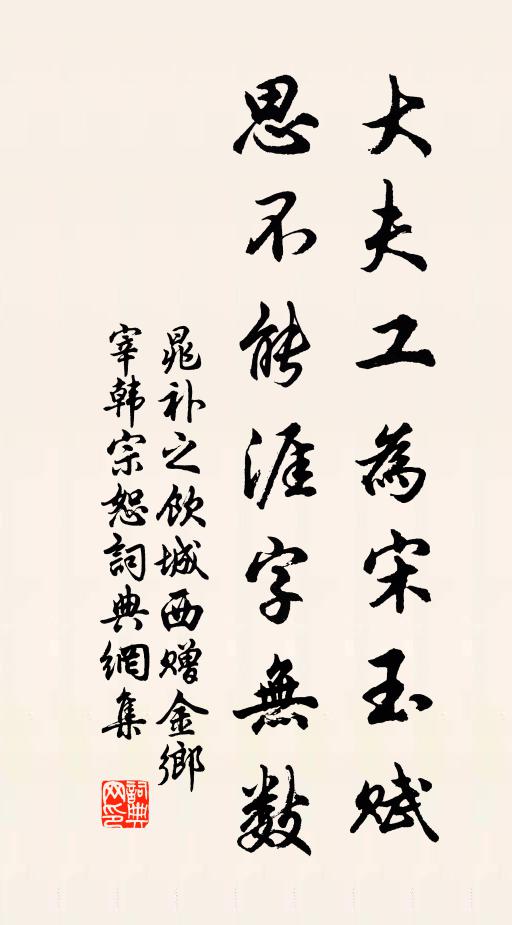 大夫工為宋玉賦
思不能涯字無數
晁补之飲城西贈金鄉
宰韩宗恕詞典網集
詞典网印